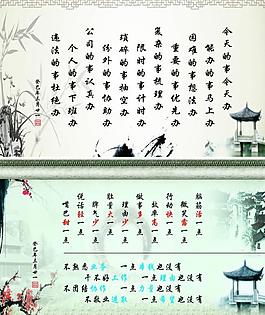 今天的事今天办
能办的事马上办
困难的事想法办
重要的事优先办
复杂的事梳理办
限时的事计时办
琐碎的事抽空办
份外的事协助办
公司的事认真办
个人的事下班办
违法的事杜绝办
脑筋活一点
微笑露一点
行动快一点
效率高一点
做事多一点
理由少一点
肚量大一点
脾气少一点
说话轻一点
嘴巴甜一点
不熟悉业务 一点本钱也没有
干不好工作 一点理由也没有
不团结协作 一点力量也没有
不敬业进取 一点希望也没有